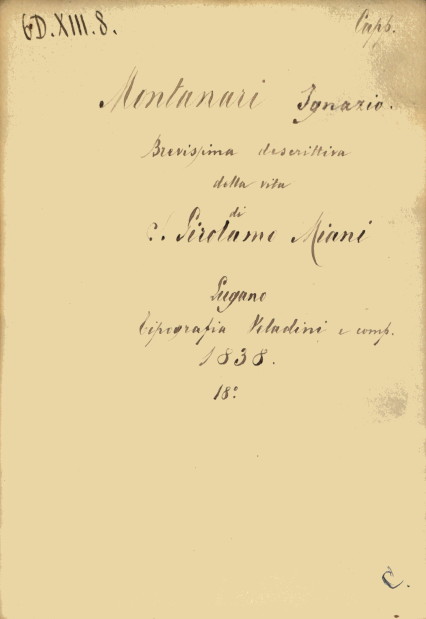 GD.XIII.8.
Capb.
Montanari Ignazio.
Brevissima descrittiva
della vita
di
S. Girolamo Miani
Lugano
Tipografia Veladini e comp.
1838.
18°
C.